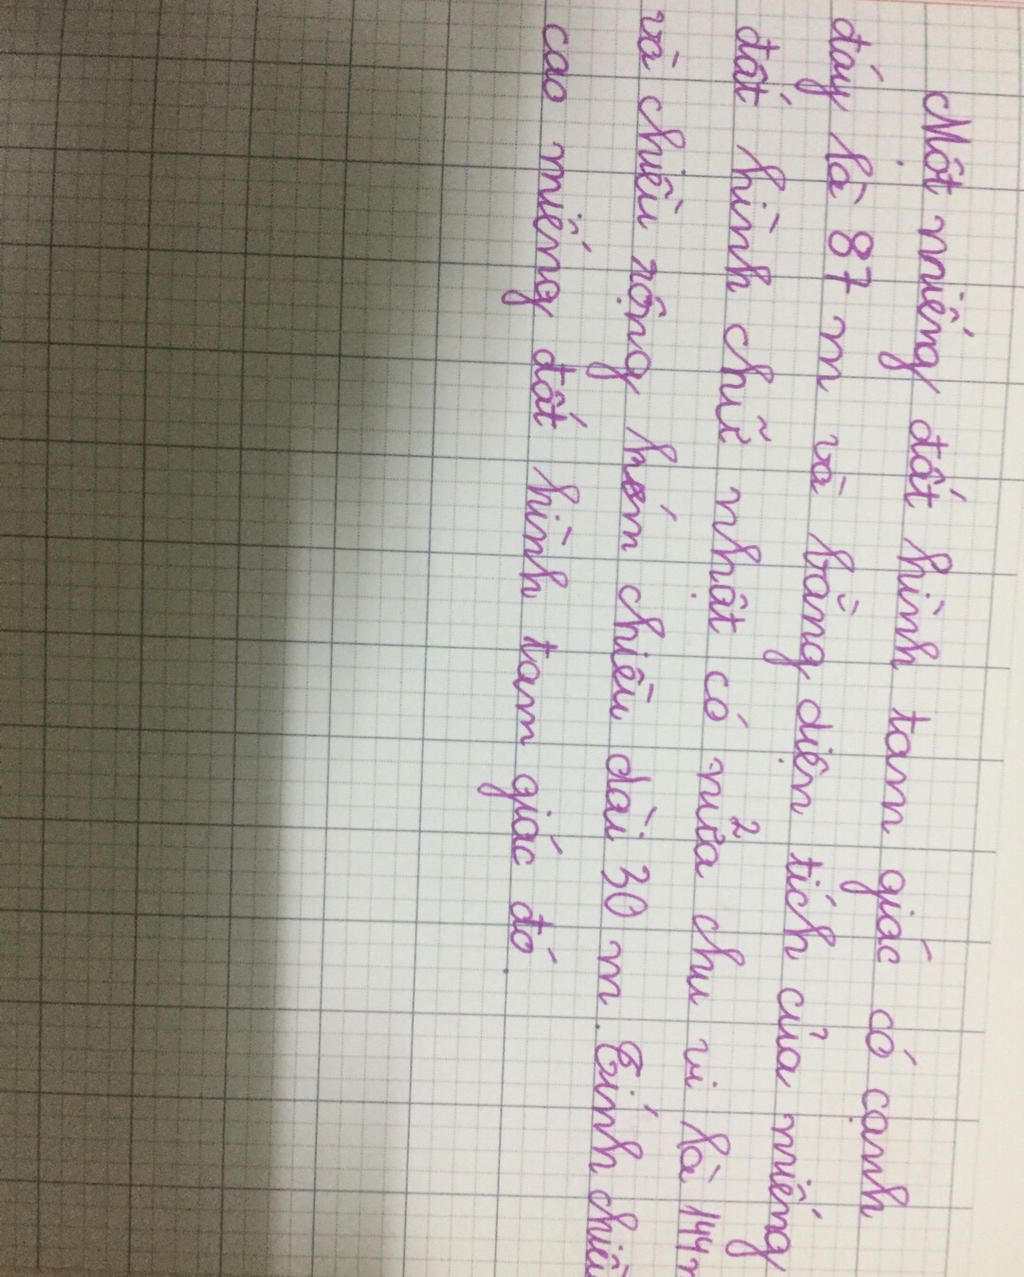 Một miếng đất hình tam giác có cạnh
đáy là 87 m và bằng diện tích của miếng
đất hình chữ nhật có nửa chu vi là 144
và chiều rộng hơn chiều dài 30 m. Tính chiều
cao miếng đất hình tam giác đó.